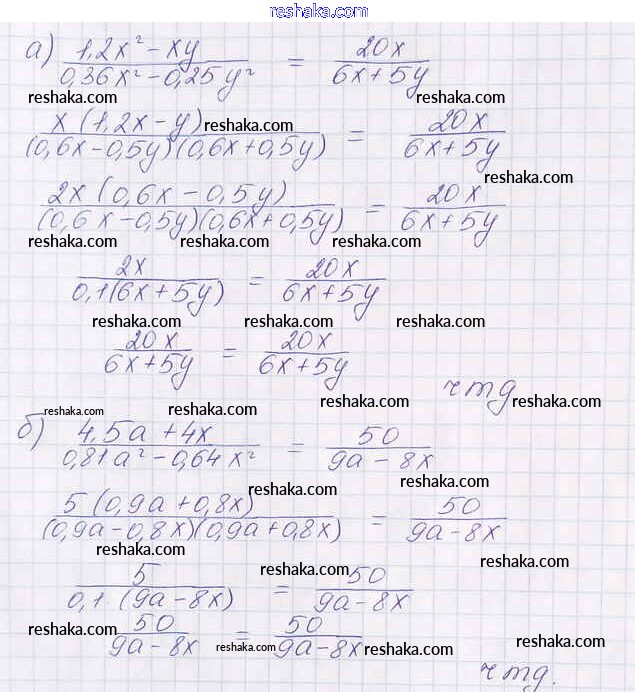 www.reshaka.com
reshaka.com
а) (1,2x² - xy)/(0,36x² - 0,25y²) = 20x/(6x + 5y)
reshaka.com reshaka.com reshaka.com
x(1,2x - y)/((0,6x - 0,5y)(0,6x + 0,5y)) = 20x/(6x + 5y)
reshaka.com
reshaka.com reshaka.com reshaka.com
2x(0,6x - 0,5y)/((0,6x - 0,5y)(0,6x + 0,5y)) = 20x/(6x + 5y)
reshaka.com reshaka.com reshaka.com
2x/(0,1(6x + 5y)) = 20x/(6x + 5y)
reshaka.com reshaka.com reshaka.com
20x/(6x + 5y) = 20x/(6x + 5y)
чтд
reshaka.com reshaka.com reshaka.com
б) (4,5a + 4x)/(0,81a² - 0,64x²) = 50/(9a - 8x)
reshaka.com reshaka.com reshaka.com
5(0,9a + 0,8x)/((0,9a - 0,8x)(0,9a + 0,8x)) = 50/(9a - 8x)
reshaka.com reshaka.com reshaka.com
5/(0,1·(9a - 8x)) = 50/(9a - 8x)
50/(9a - 8x) = 50/(9a - 8x)
reshaka.com reshaka.com reshaka.com reshaka.com
чтд.